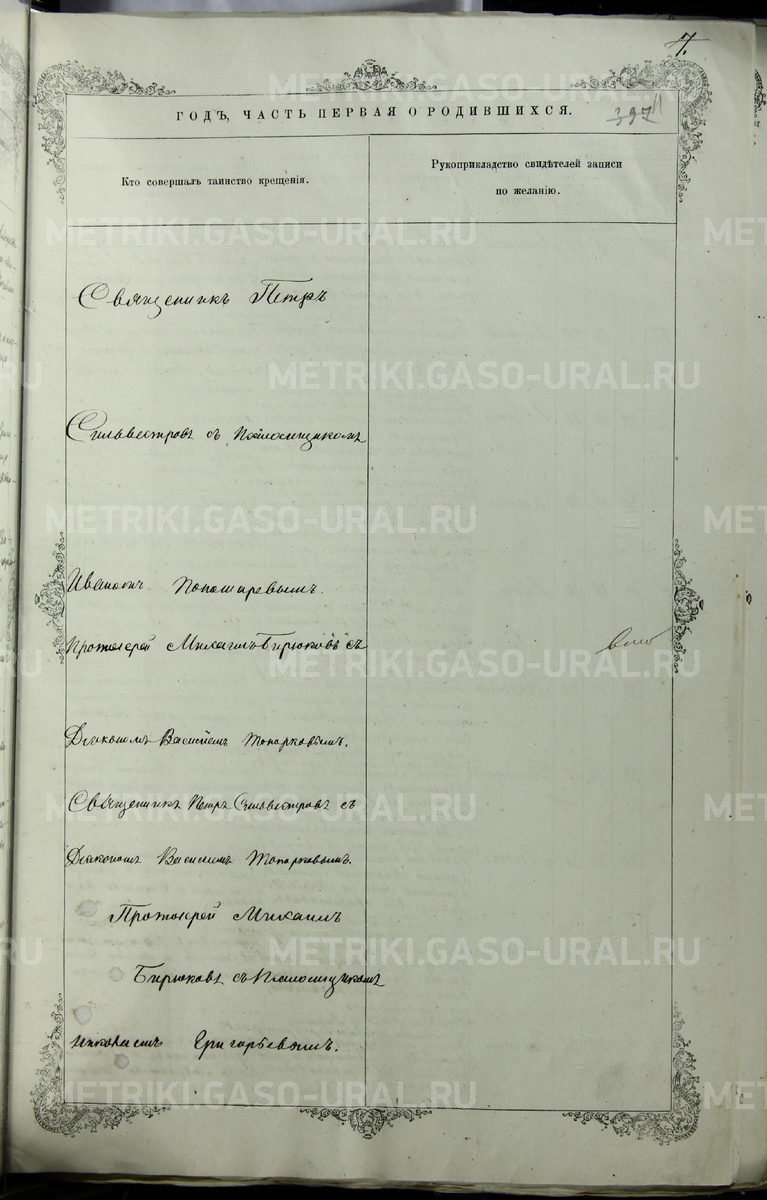 7.
397
ГОДЪ, ЧАСТЬ ПЕРВАЯ О РОДИВШИХСЯ.
Кто совершалъ таинство крещенія.
Рукоприкладство свидѣтелей записи
по желанію.
Священникъ Петръ
Сильвестровъ съ Псаломщикомъ
Протоіерей Михаилъ Бирюковъ съ
Діакономъ Василіемъ Топорковымъ.
Священникъ Петръ Сильвестровъ съ
Діакономъ Василіемъ Топорковымъ.
Протоіерей Михаилъ
Бирюковъ съ Псаломщикомъ
Николаемъ Григорьевымъ.
METRIKI.GASO-URAL.RU